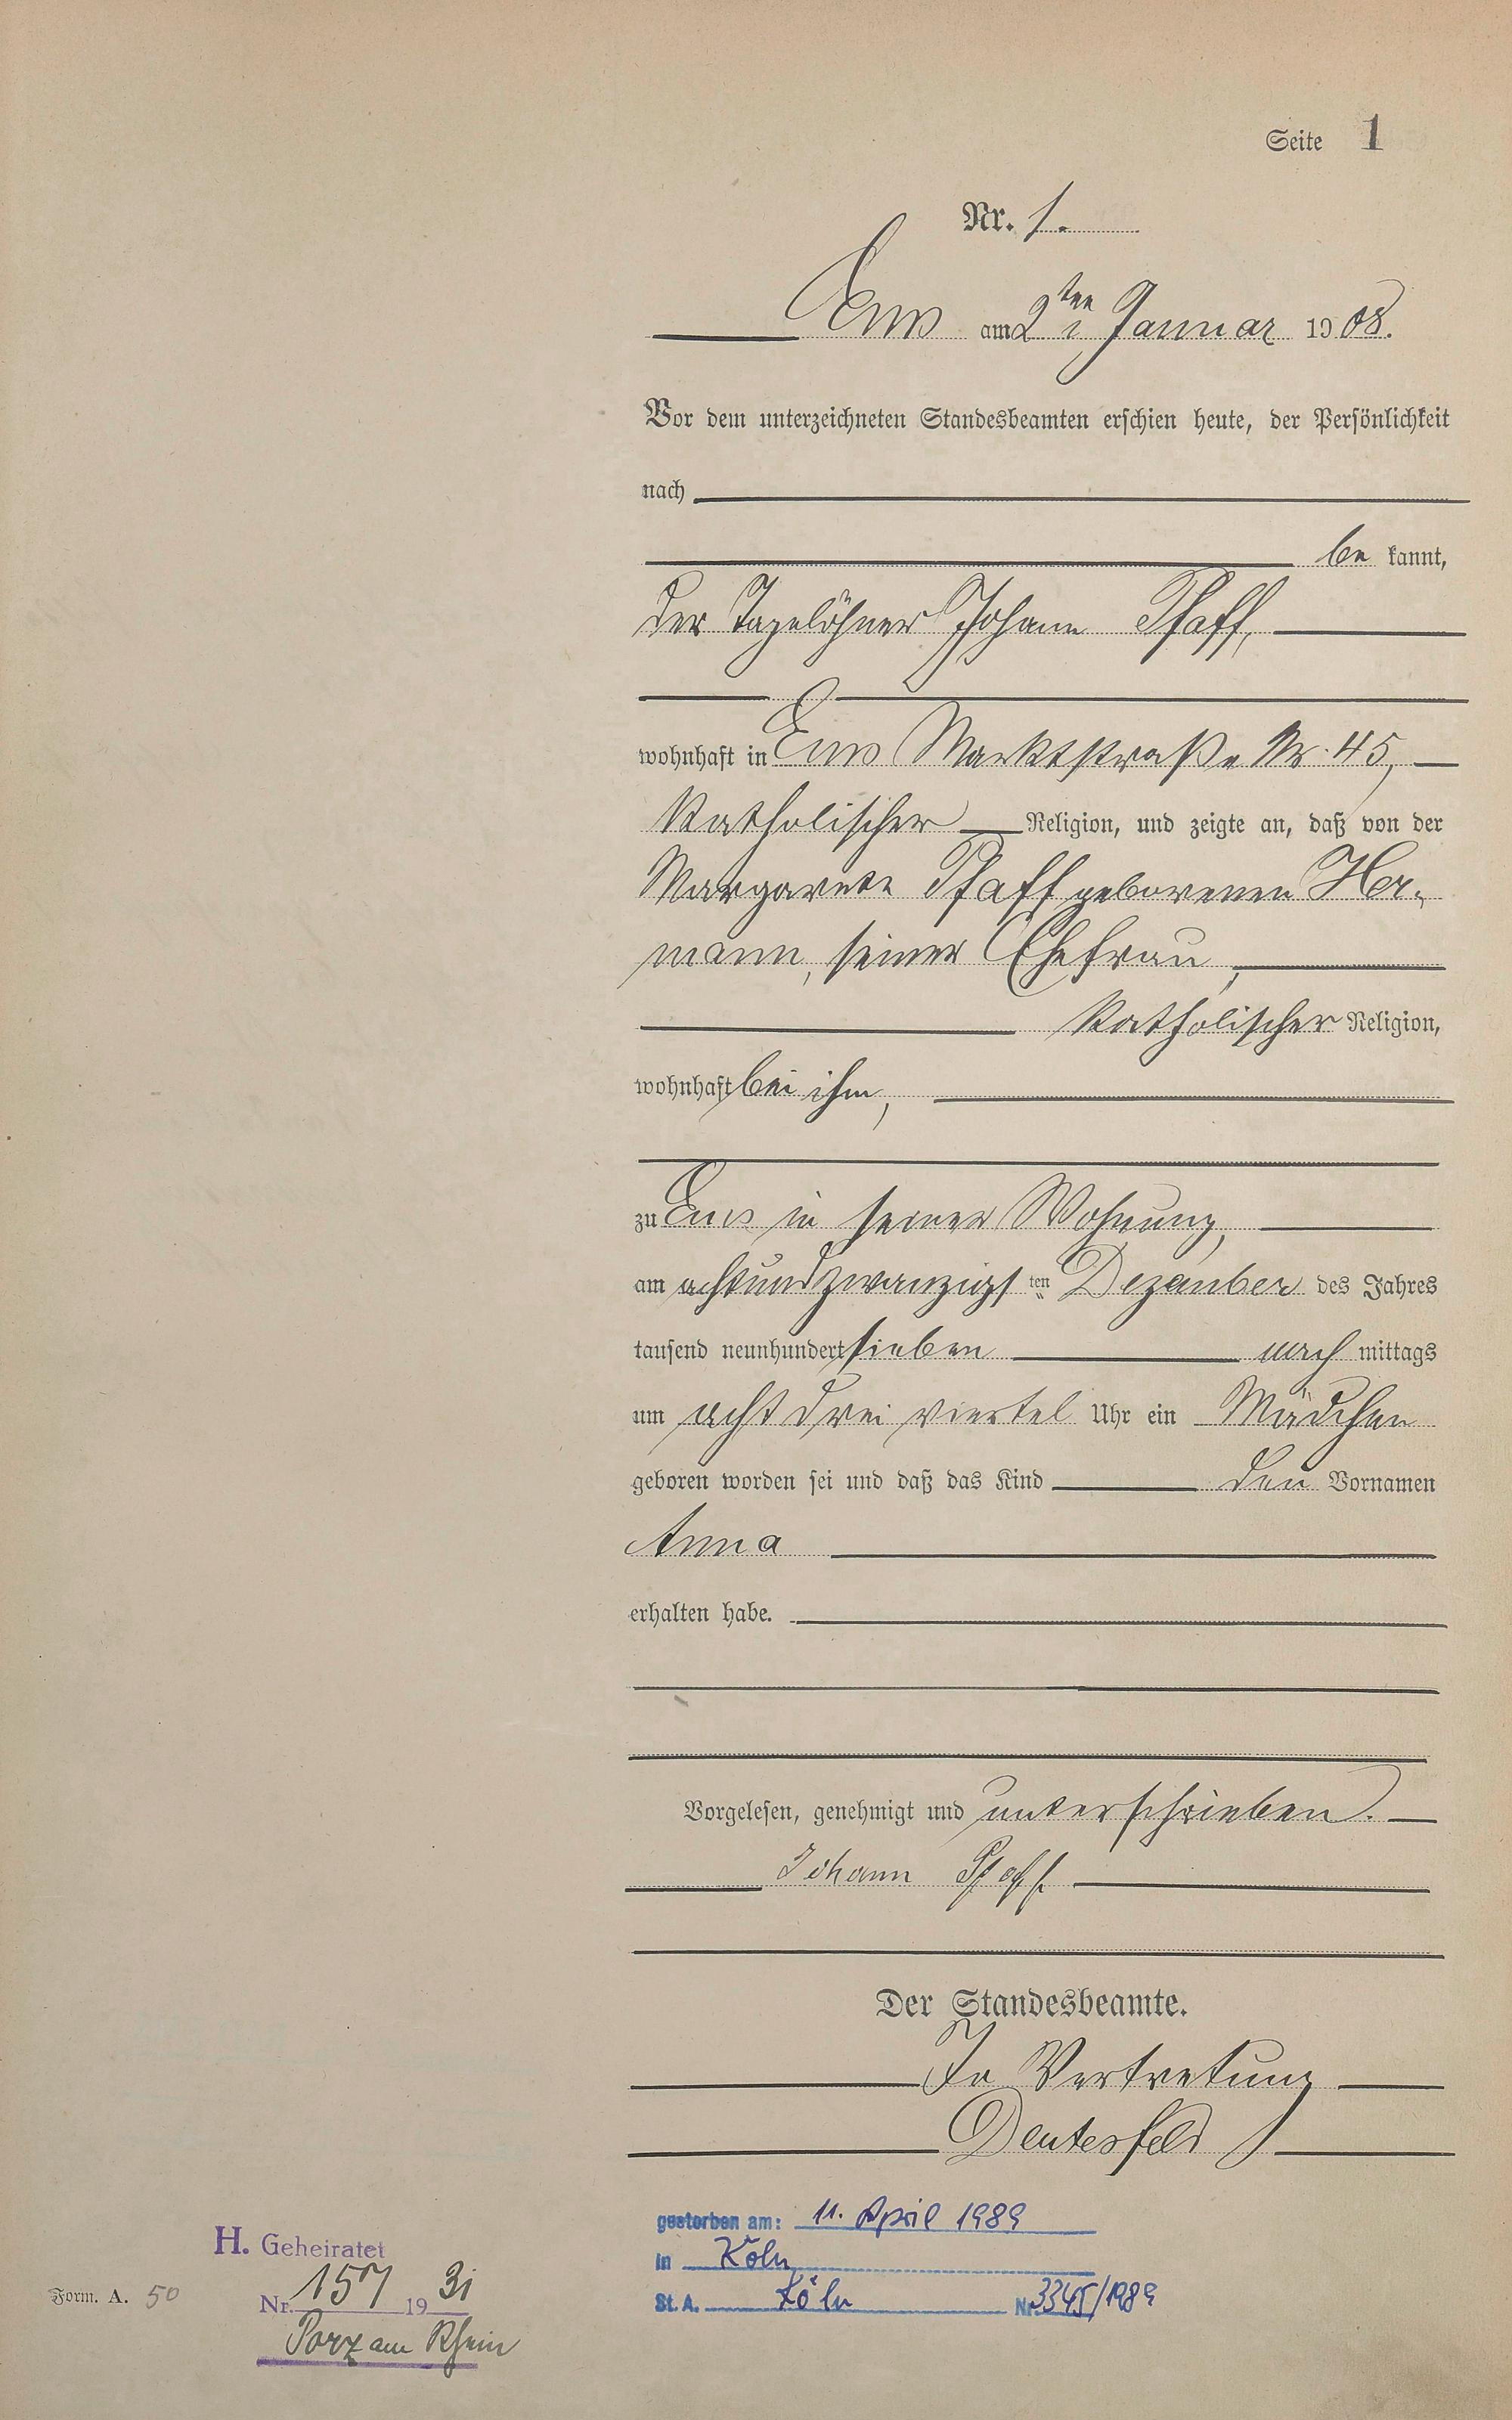 Seite 1
Nr. 1.
Ems am 2ten Januar 1908.
Vor dem unterzeichneten Standesbeamten erschien heute, der Persönlichkeit
nach
be kannt,
der Tagelöhner Johann Pfaff,
wohnhaft in Ems Marktstraße Nr. 45,
katholischer Religion, und zeigte an, daß von der
Margarete Pfaff geborenen Her-
mann, seiner Ehefrau,
katholischer Religion,
wohnhaft bei ihm,
zu Ems in seiner Wohnung,
am achtundzwanzigsten Dezember des Jahres
tausend neunhundert sieben nach mittags
um acht drei viertel Uhr ein Mädchen
geboren worden sei und daß das Kind den Vornamen
Anna
erhalten habe.
Vorgelesen, genehmigt und unterschrieben.
Johann Pfaff
Der Standesbeamte.
In Vertretung
Deutesfeld
gestorben am: 11. April 1989
in Köln
St. A. Köln Nr. 3345/1989
H. Geheiratet
Nr. 157 1931
Porz am Rhein
Form. A. 50